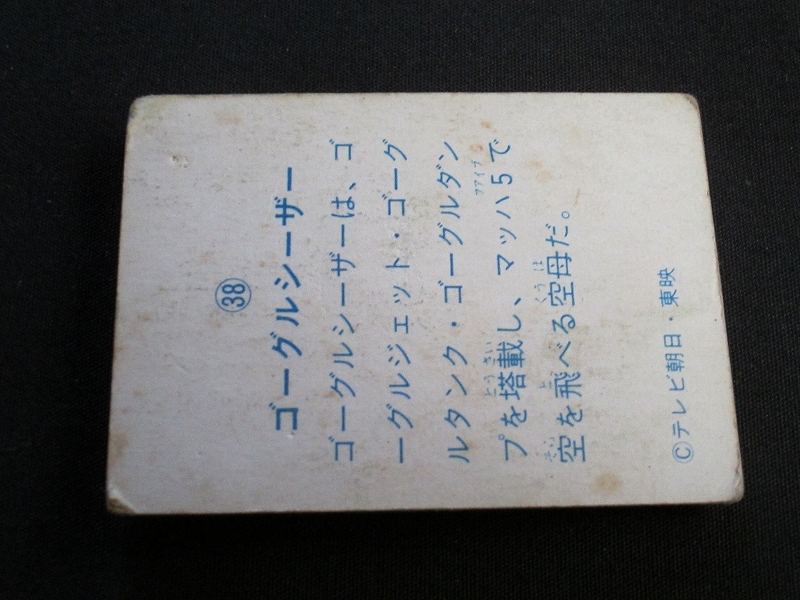 ㊳
ゴーグルシーザー
ゴーグルシーザーは、ゴ
ーグルジェット・ゴーグ
ルタンク・ゴーグルダン
プを塔載し、マッハ5で
空を飛べる空母だ。
©テレビ朝日・東映